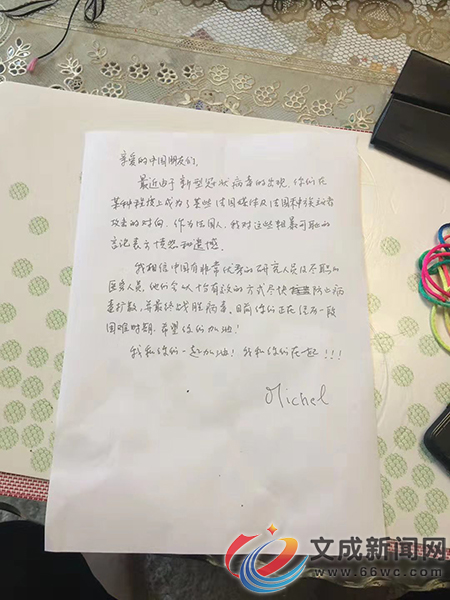 亲爱的中国朋友们,
最近由于新型冠状病毒的出现,你们在
某种程度上成为了某些法国媒体及法国种族主义者
攻击的对向。作为法国人,我对这些粗暴可耻的
言论表示愤怒和遗憾。
我相信中国有非常优秀的研究人员及尽职的
医务人员,他们会以恰有效的方式尽快防止病
毒扩散,并最终战胜病毒。目前你们正在经历一段
困难时期,希望你们加油!
我和你们一起加油!我和你们在一起!!!
Michel
文成新闻网
www.66wc.com